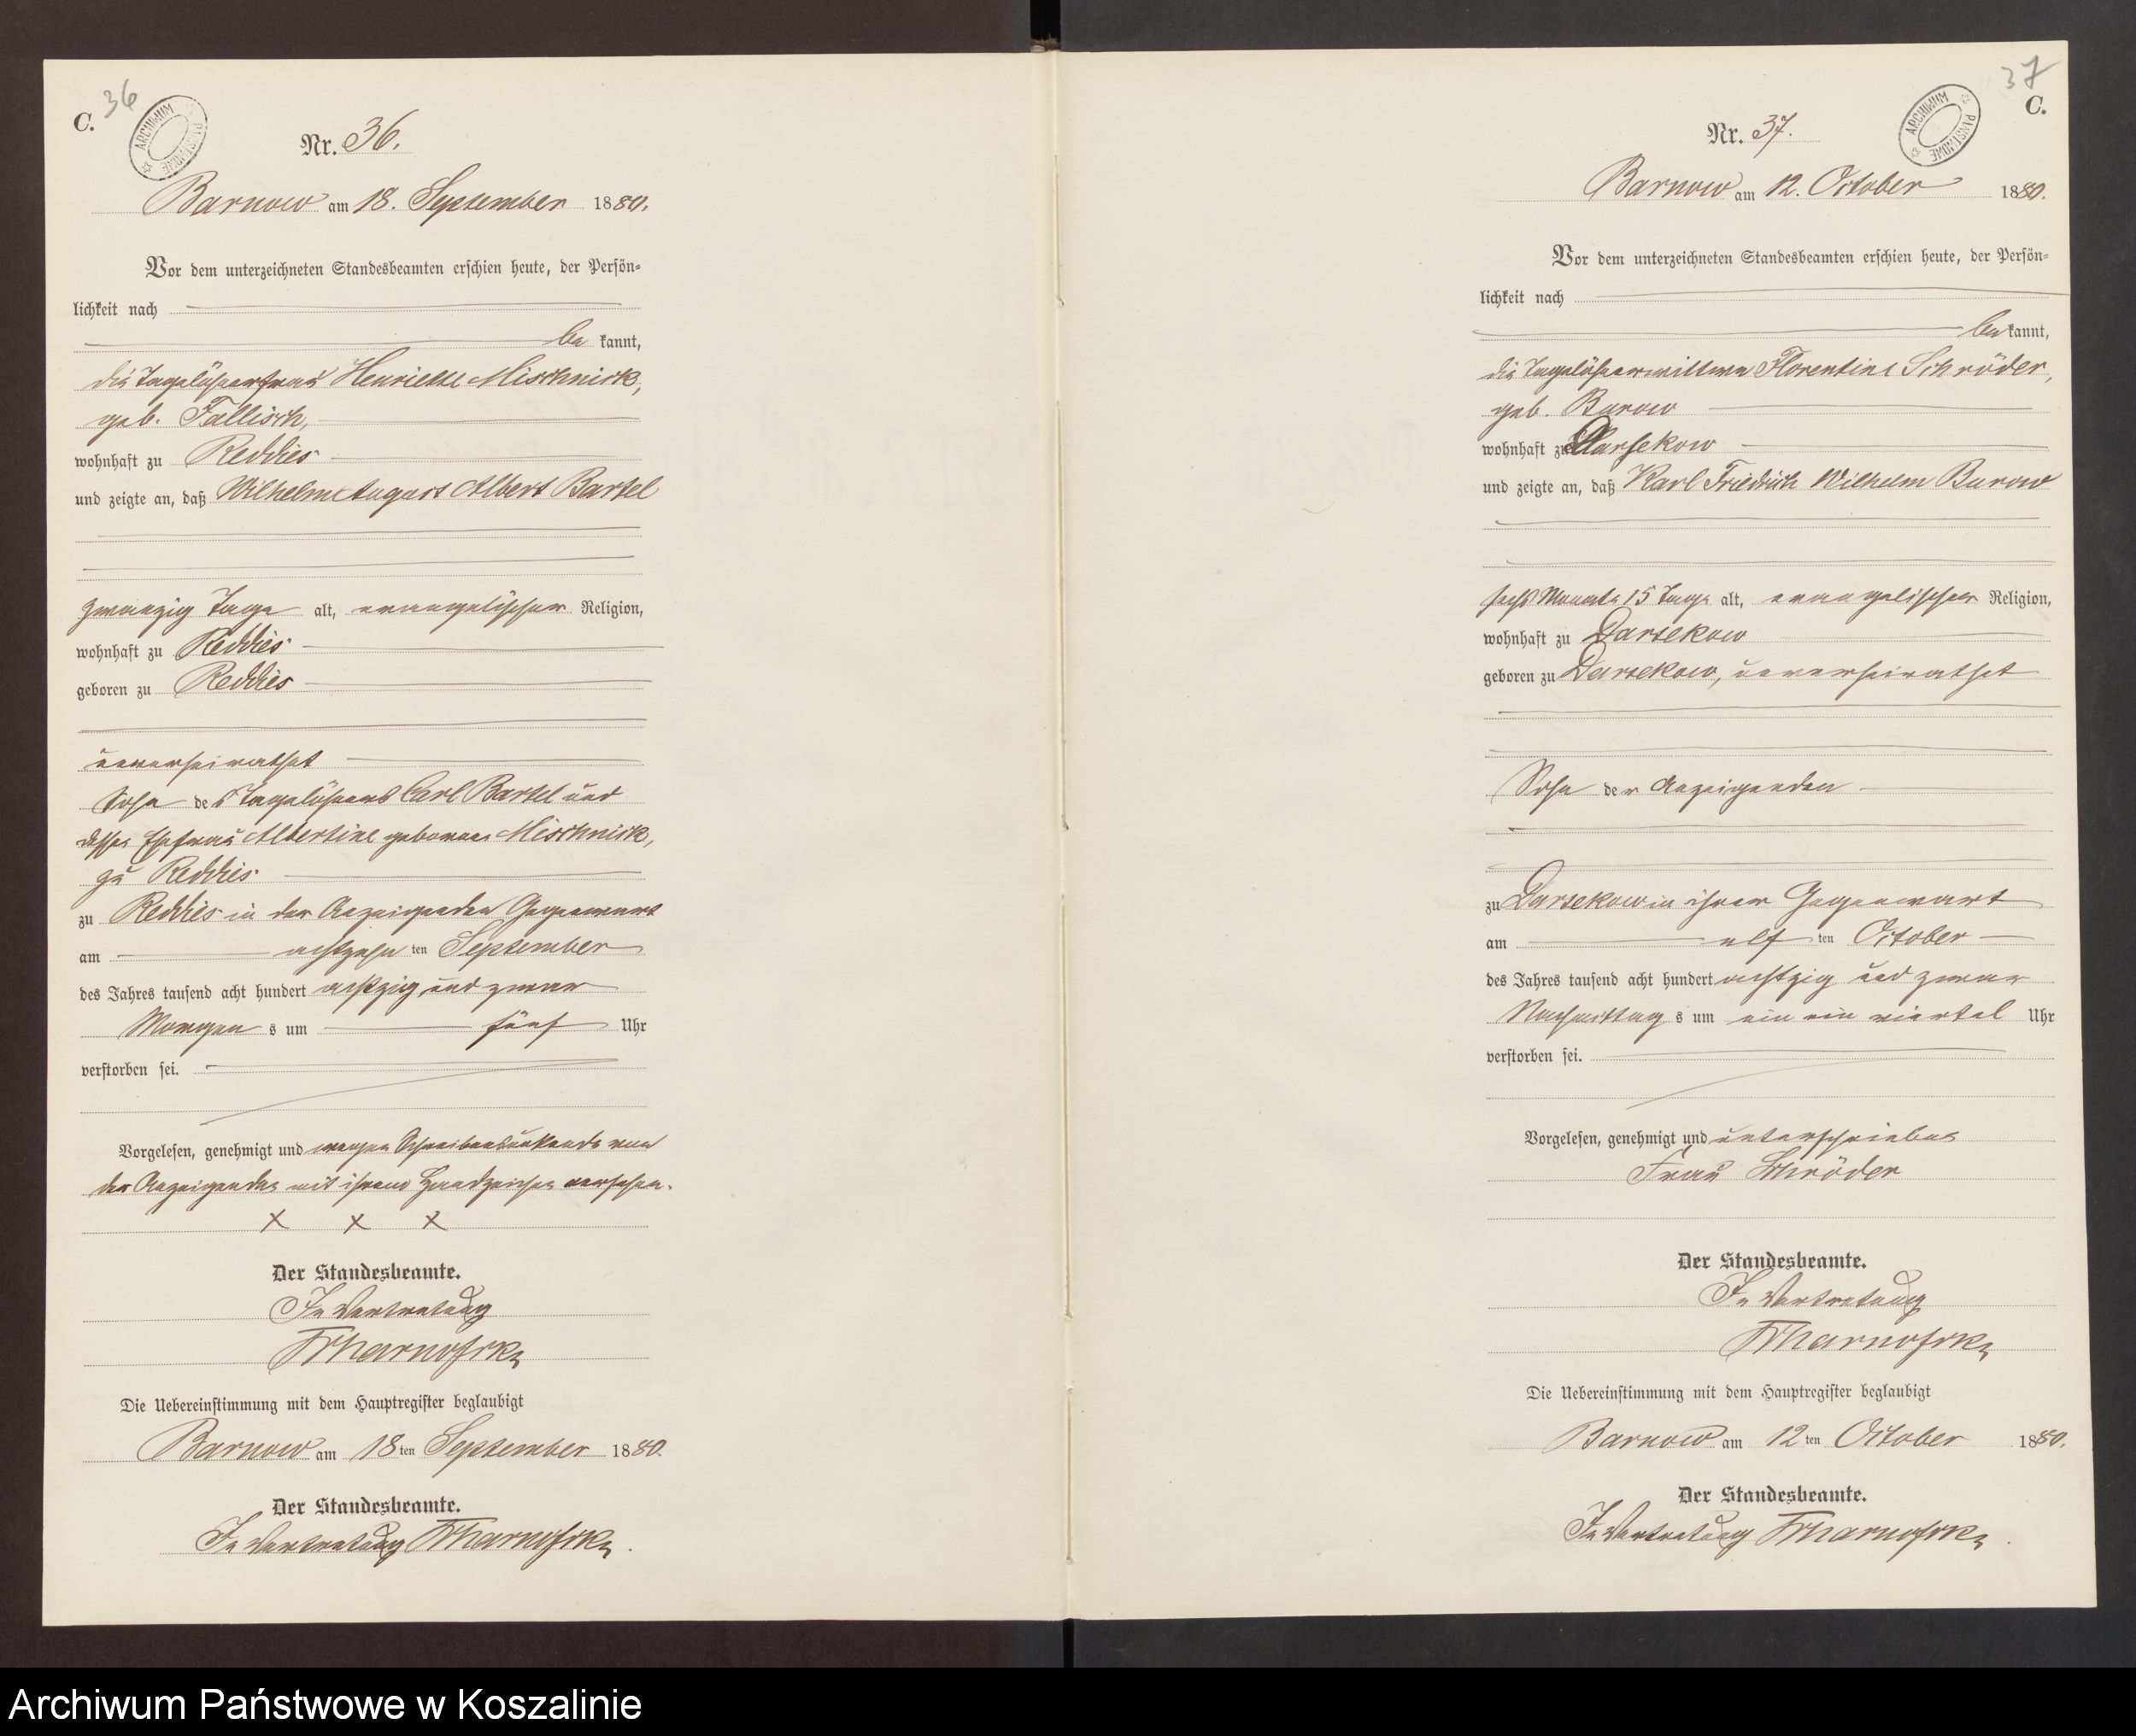 36
C.
ARCHIWUM PAŃSTWOWE
Nr. 36.
Barnow am 18. September 1880.
Vor dem unterzeichneten Standesbeamten erschien heute, der Persön=
lichkeit nach
be kannt,
die Tagelöhnerfrau Henriette Mischnick,
geb. Fallisch,
wohnhaft zu Reddies
und zeigte an, daß Wilhelm August Albert Bartel
zwanzig Tage alt, evangelischer Religion,
wohnhaft zu Reddies
geboren zu Reddies
unverheirathet
Sohn des Tagelöhners Carl Bartel und
dessen Ehefrau Albertine geborene Mischnick,
zu Reddies
zu Reddies in der Anzeigenden Gegenwart
am achtzehn ten September
des Jahres tausend acht hundert achtzig und zwar
Morgen s um fünf Uhr
verstorben sei.
Vorgelesen, genehmigt und wegen Schreibensunkunde von
der Anzeigenden mit ihrem Handzeichen versehen.
x x x
Der Standesbeamte.
In Vertretung
Die Uebereinstimmung mit dem Hauptregister beglaubigt
Barnow am 18 ten September 1880.
Der Standesbeamte.
In Vertretung
37
C.
ARCHIWUM PAŃSTWOWE
Nr. 37.
Barnow am 12. October 1880.
Vor dem unterzeichneten Standesbeamten erschien heute, der Persön=
lichkeit nach
be kannt,
die Tagelöhnerwittwe Florentine Schröder,
geb. Burow
wohnhaft zu Darsekow
und zeigte an, daß Karl Friedrich Wilhelm Burow
sechs Monate 15 Tage alt, evangelischer Religion,
wohnhaft zu Darsekow
geboren zu Darsekow, unverheirathet
Sohn der Anzeigenden
zu Darsekow in ihrer Gegenwart
am elf ten October
des Jahres tausend acht hundert achtzig und zwar
Nachmittag s um ein ein viertel Uhr
verstorben sei.
Vorgelesen, genehmigt und unterschrieben
Frau Schröder
Der Standesbeamte.
In Vertretung
Die Uebereinstimmung mit dem Hauptregister beglaubigt
Barnow am 12 ten October 1880.
Der Standesbeamte.
In Vertretung
Archiwum Państwowe w Koszalinie